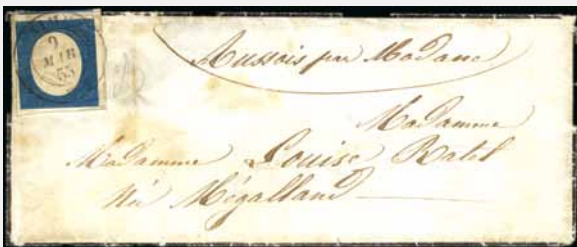 9
MAR
53
Aussois par Modane
Madamme
Madamme Louise Ratel
Née Mégalland